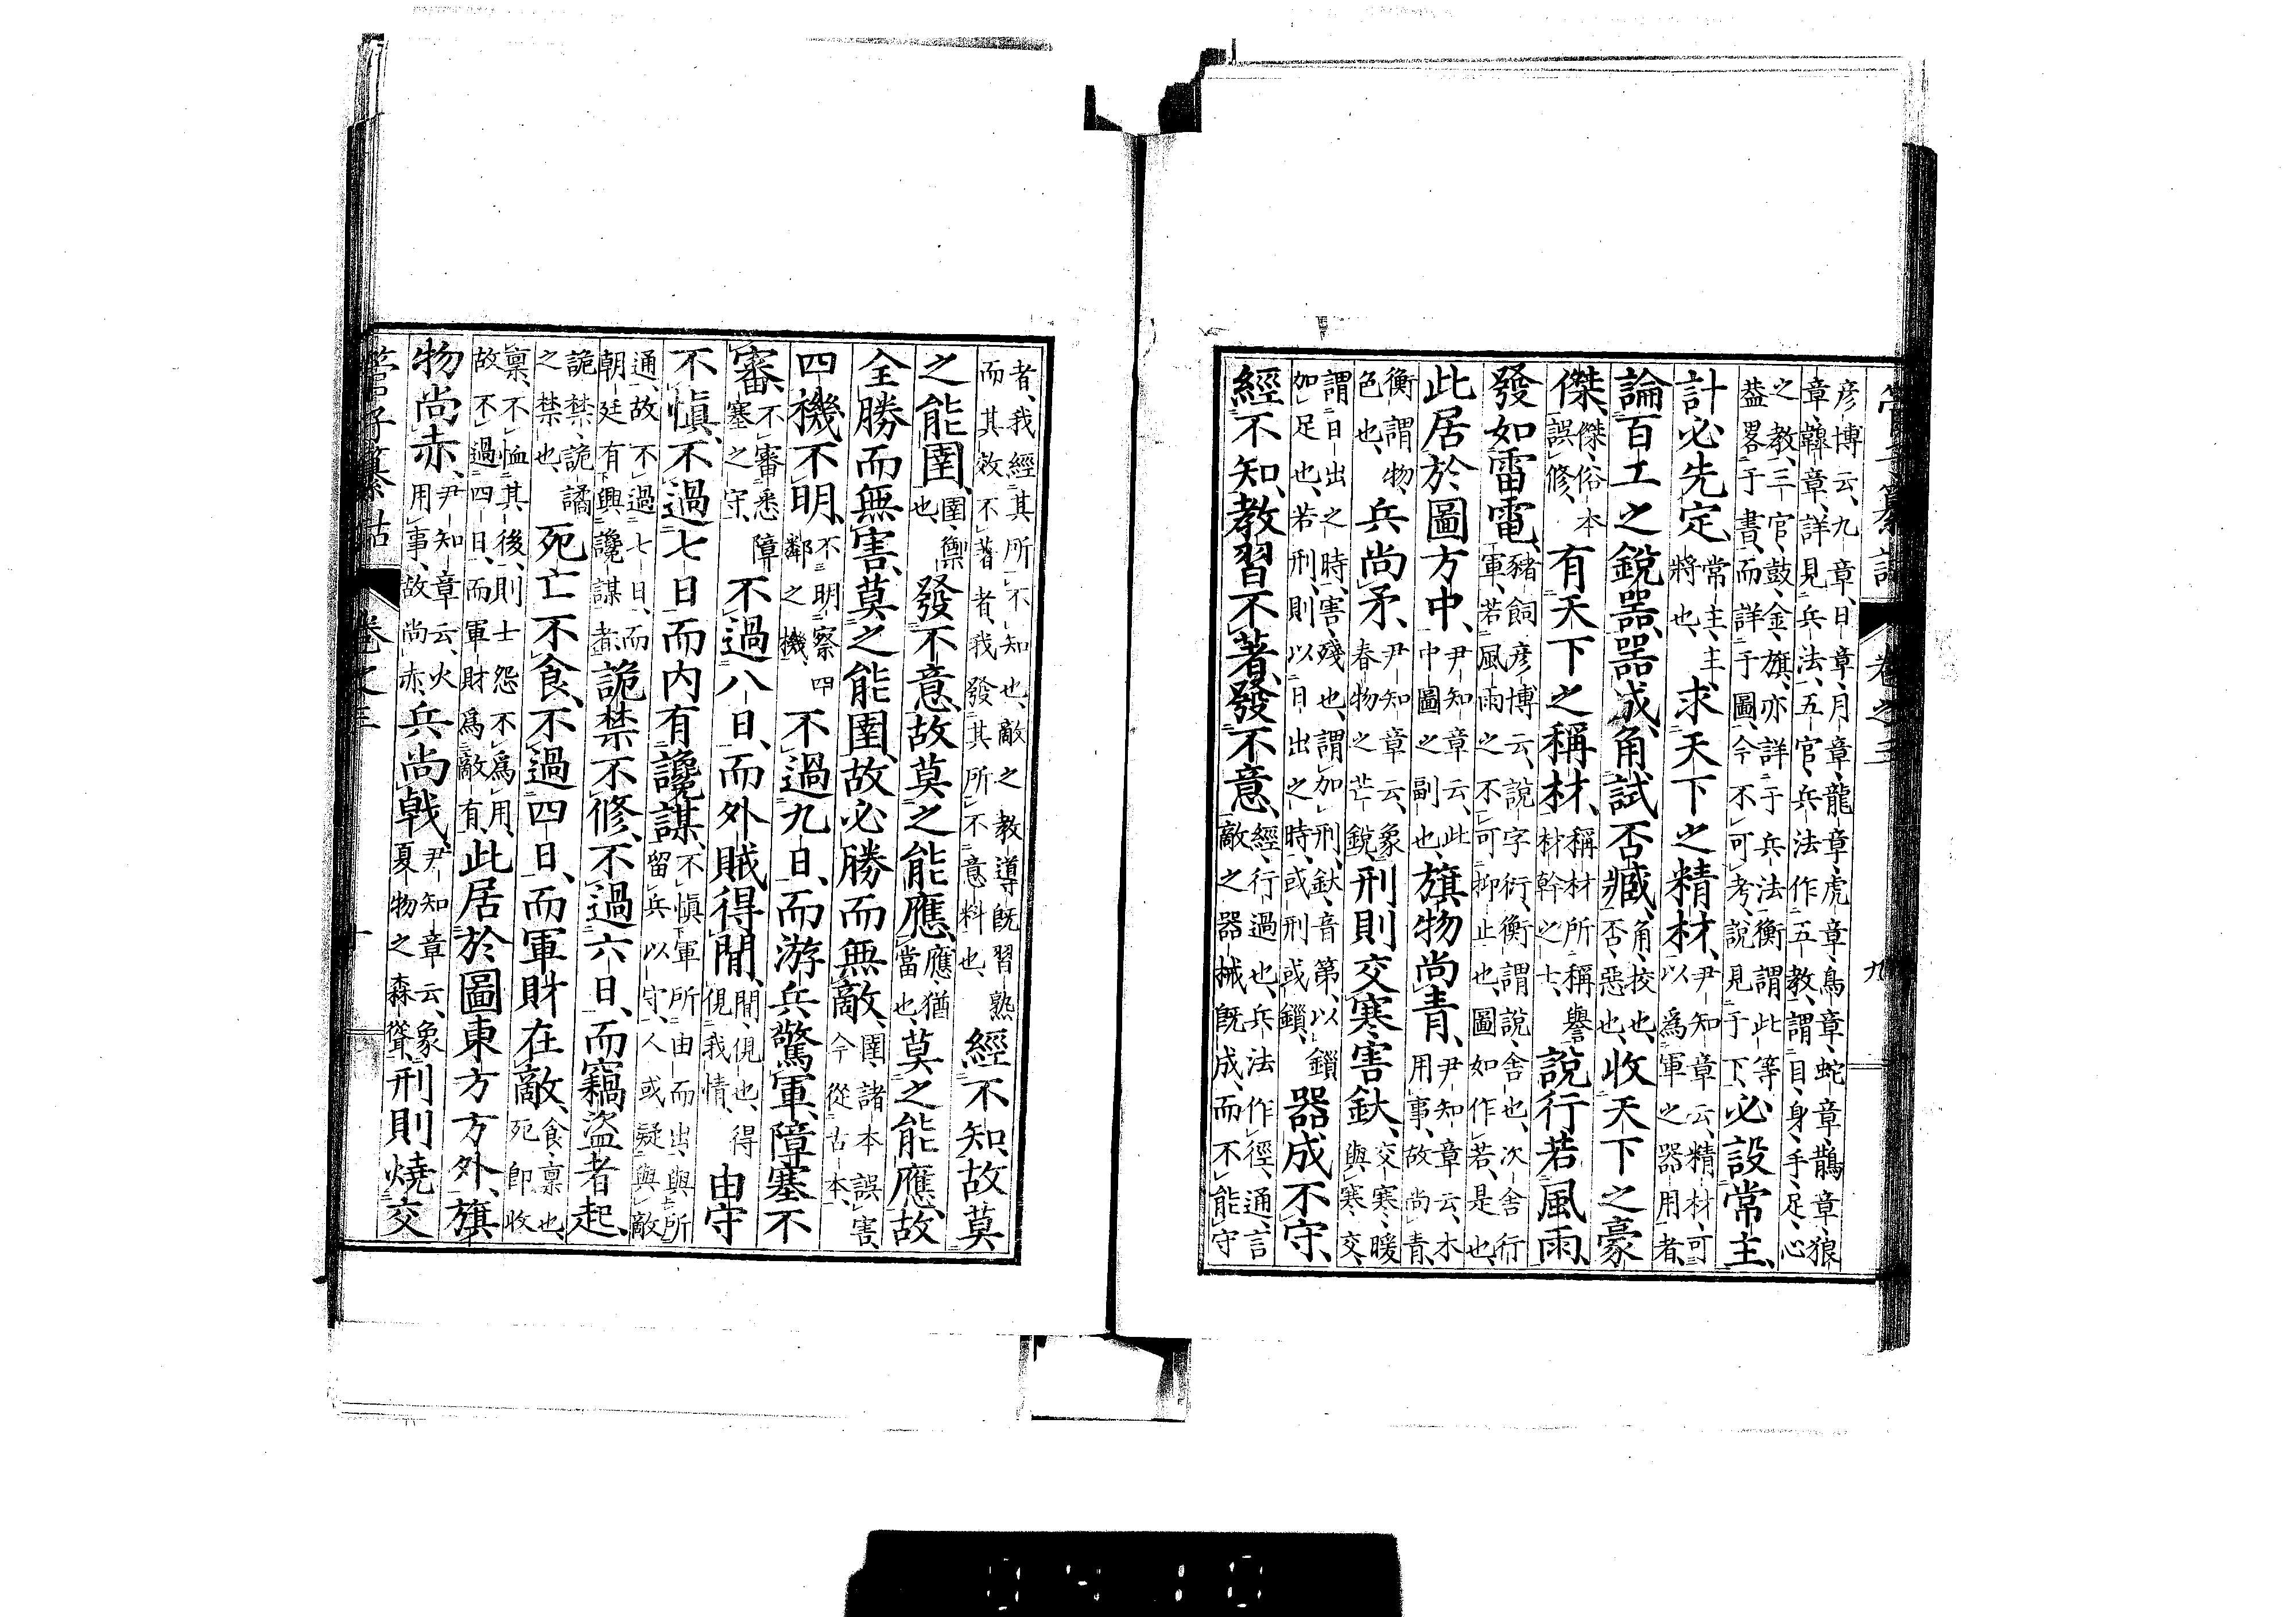 管子纂詁 卷之三 九
彥博云、九章、日章、月章、龍章、虎章、鳥章、蛇章、鵲章、狼章、韓章、詳見兵法、五官、兵法作五教、謂目、身、手、足、心
之教、三官、鼓、金、旗、亦詳于兵法、衡謂此等葢畧于書、而詳于圖、今不可考、說見于下、必設常主、
計必先定、常主、主將也、求天下之精材、尹知章云、精材、可以爲軍之器用者、
論百工之銳器、器成、角試否臧、角、挍也、否、惡也、收天下之豪
傑、傑、俗本誤修、有天下之稱材、稱材所稱譽材幹之士、說行若風雨、
發如雷電、豬飼彥博云、說字衍、衡謂說、舍也、次舍行軍、若風雨之不可抑止也、圖如作若、是也、
此居於圖方中、尹知章云、此中圖之副也、旗物尚青、尹知章云、木用事、故尚青、
衡謂物、色也、兵尚矛、尹知章云、象春物之芒銳、刑則交寒、害釱、交寒、暖與寒交、
謂日出之時、害、殘也、謂加刑、釱、音第、以鎻加足也、若刑、則以日出之時、或刑或鎻、器成不守、
經不知、教習不著、發不意、經、行過也、兵法作徑、通、言敵之器械既成、而不能守
者、我經其所不知也、敵之教導既習熟而其效不著者、我發其所不意料也、經不知、故莫
之能圉、圉、禦也、發不意、故莫之能應、應、猶當也、莫之能應、故
全勝而無害、莫之能圉、故必勝而無敵、圉、諸本誤害、今從古本、
四機不明、不明察四鄰之機、不過九日、而游兵驚軍、障塞不
審、不審悉障塞之守、不過八日、而外賊得閒、閒、俔也、得俔我情、由守
不愼、不過七日而内有讒謀、不愼軍所由而出、與所留兵以守、人或疑與敵
通、故不過七日、而朝廷有興讒謀者、詭禁不修、不過六日、而竊盜者起、
詭禁、詭譎之禁也、死亡不食、不過四日、而軍財在敵、食、禀也、死卽收
禀、不恤其後、則士怨不爲用、故不過四日、而軍財爲敵有、此居於圖東方方外、旗
物尚赤、尹知章云、火用事、故尚赤、兵尚戟、尹知章云、象夏物之森聳、刑則燒交
管子纂詁 卷之三 十